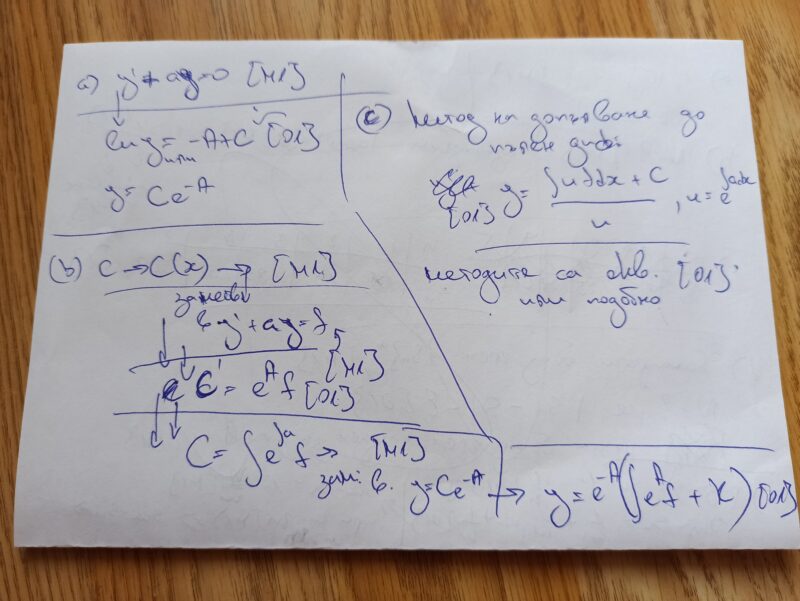 a) y' + ay = 0 [M1]
ln y = -A + C [O1]
или
y = Ce^{-A}
(b) C → C(x) → [M1]
заместв
в y' + ay = f
[M1]
C' = e^A f [O1]
C = ∫e^{∫a} f → [M1]
зам. в. y = Ce^{-A} → y = e^{-A}(∫e^A f + K) [O1]
(c) Метод на допълване до
пълен диф.
[O1] y = (∫u f dx + C) / u , u = e^{∫a dx}
методите са екв. [O1]
или подобно